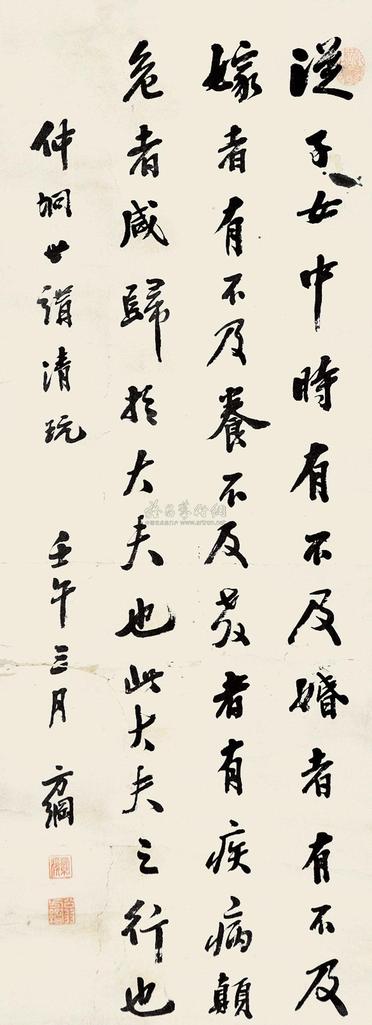 從子女中時有不及婚者有不及
嫁者有不及養不及教者有疾病顛
危者咸歸於大夫也此大夫之行也
仲峒世講清玩
壬午三月 方綱